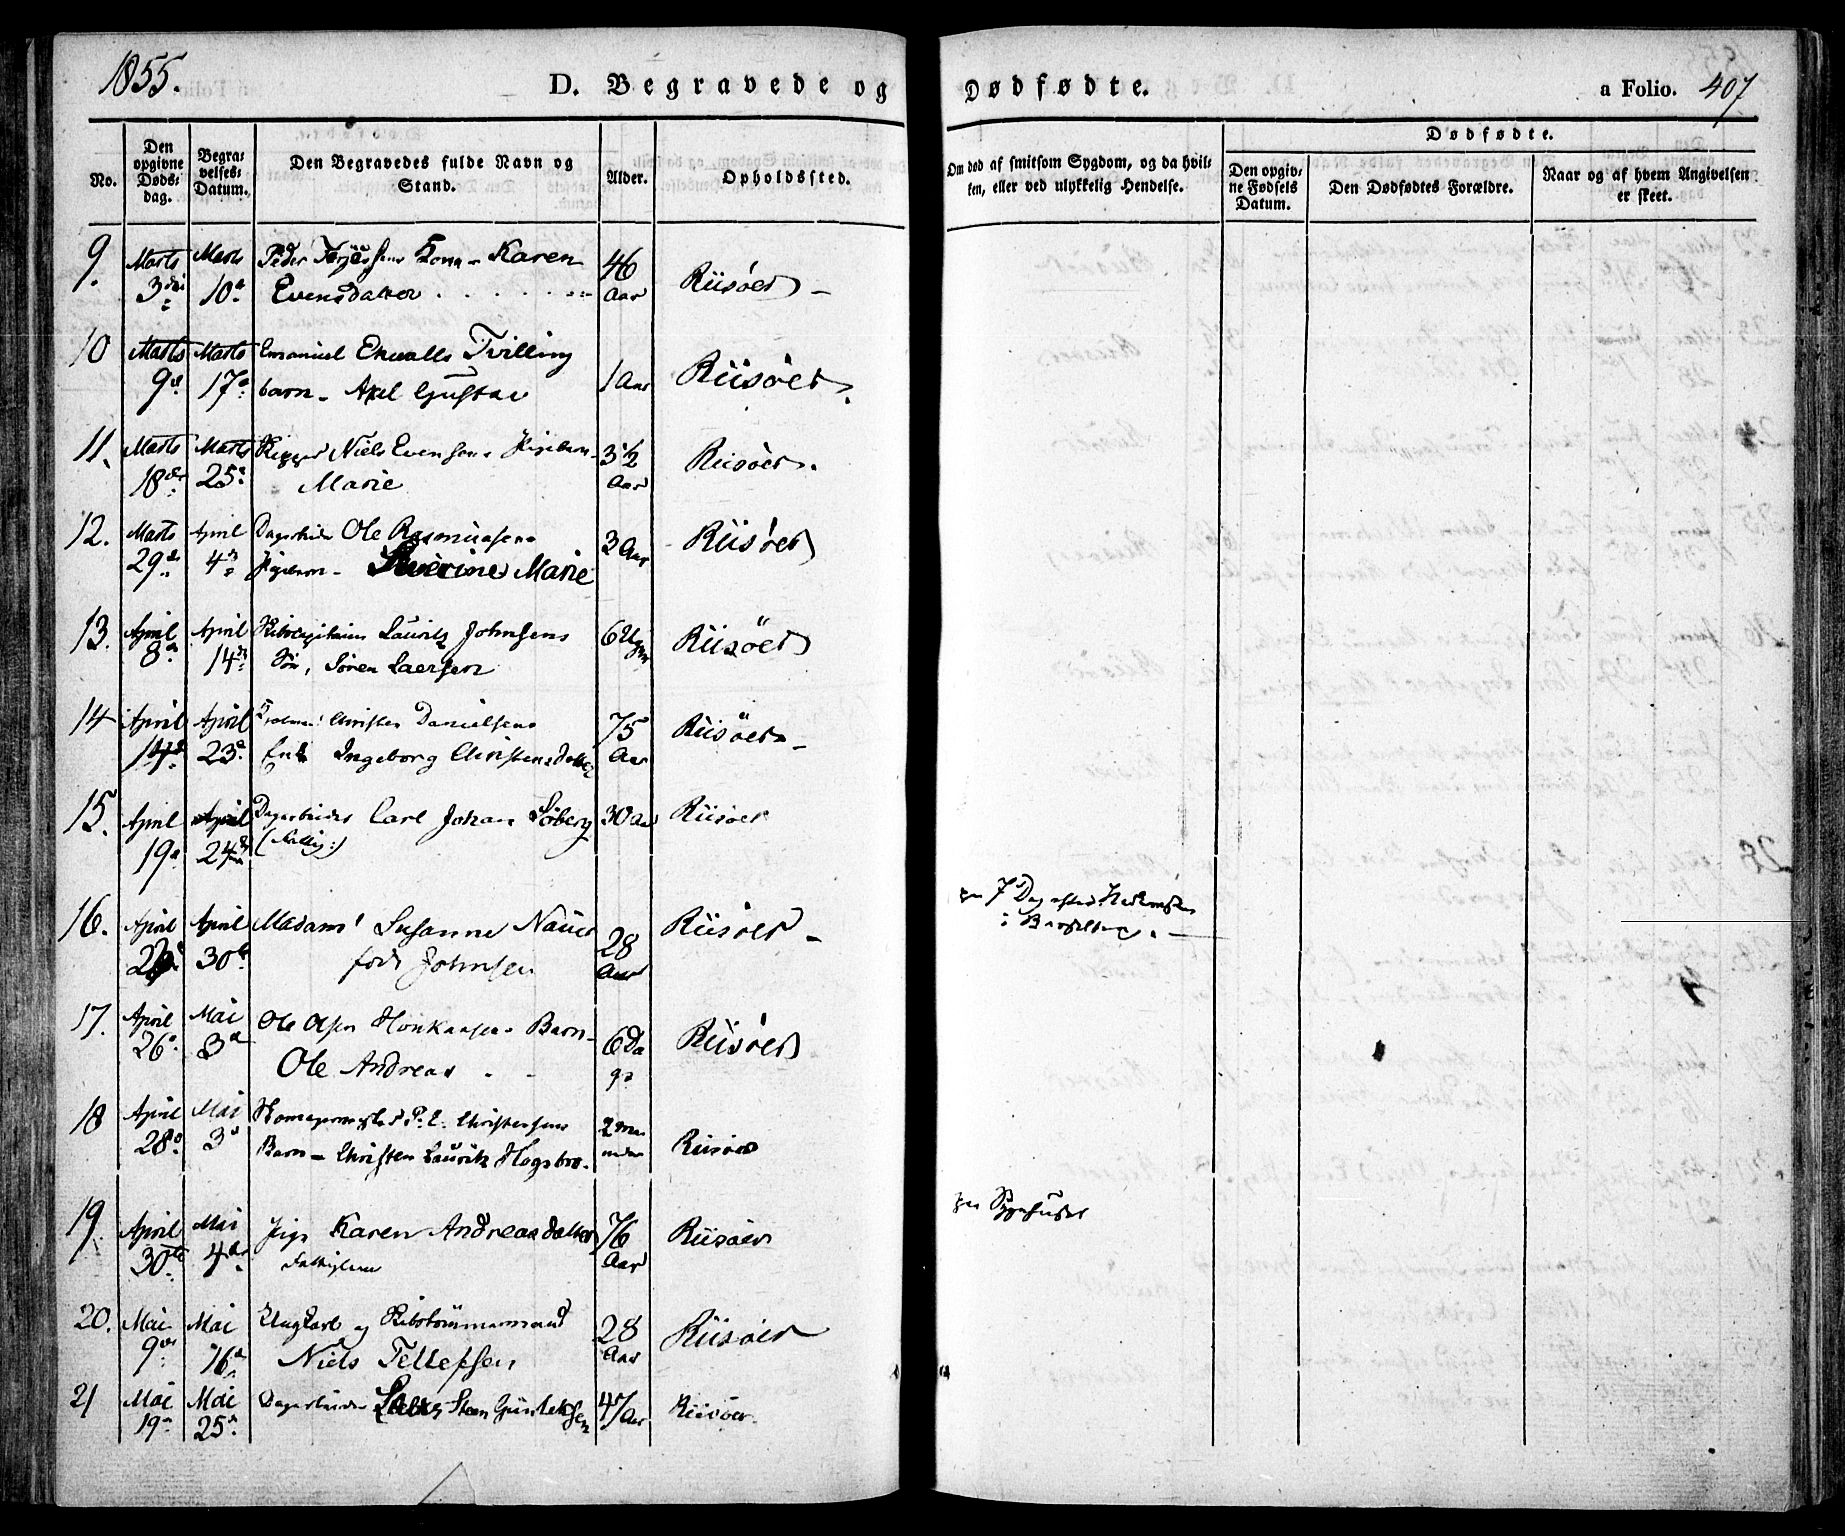 1855.
D. Begravede og Dødfødte.
a Folio. 407
No.
Den opgivne Døds-dag.
Begra-velses-Datum.
Den Begravedes fulde Navn og Stand.
Alder.
Opholdssted.
Om død af smitsom Sygdom, og da hvil-ken, eller ved ulykkelig Hendelse.
Dødfødte.
Den opgiv-ne Fødsels Datum.
Den Dødfødtes Forældre.
Naar og af hvem Angivelsen er skeet.
9. Marts Marts Peder Terjessens Kona - Karen 46
3die 10de Evensdatter Aar Riisöer
10 Marts Marts Emanuel Ekwalls Tvilling
9de 17de barn - Axel Gustav 1 Aar Riisöer.
11. Marts Marts Rigger Niels Evensens Pigebarn 3½
18de 25de Marie Aar Riisöer.
12. Marts April Dagarbeider Ole Rasmussens
29de 4de Pigebarn - Severine Marie 3 Aar Riisöer
13. April April Lauritz Johnsens 6 Uger
8de 14de Søn, Sören Laersen Riisöer
14 April April Christen Danielsens 75
14de 23de Enke Ingeborg Christensdatter Aar Riisöer
15. April April Dagarbeider Carl Johan Söberg 30 Aar Riisöer
19de 24de (fattig:)
16. April April Madame Susanne Nauer 28 Riisöer
30te född Johnsen Aar
7 Dage efter
i Barselseng.
17. April Mai Ole Olsen Barn 6 Da
26de 3de Ole Andreas ge Riisöer
18 April Mai P. C. Christensens 2 Maa
28de 3de Barn - Christen Lauritz neder Riisöer
19. April Mai Pige Karen Andreasdatter 76 Riisöer
30te 4de Fattiglem Aar
paa Sygehuset
20. Mai Mai Ungkarl og Skibstömmermand 28
9de 16de Niels Tellefsen Aar Riisöer
21 Mai Mai Dagarbeider Steen Guntelsen 47 Aar Riisöer.
19de 25de